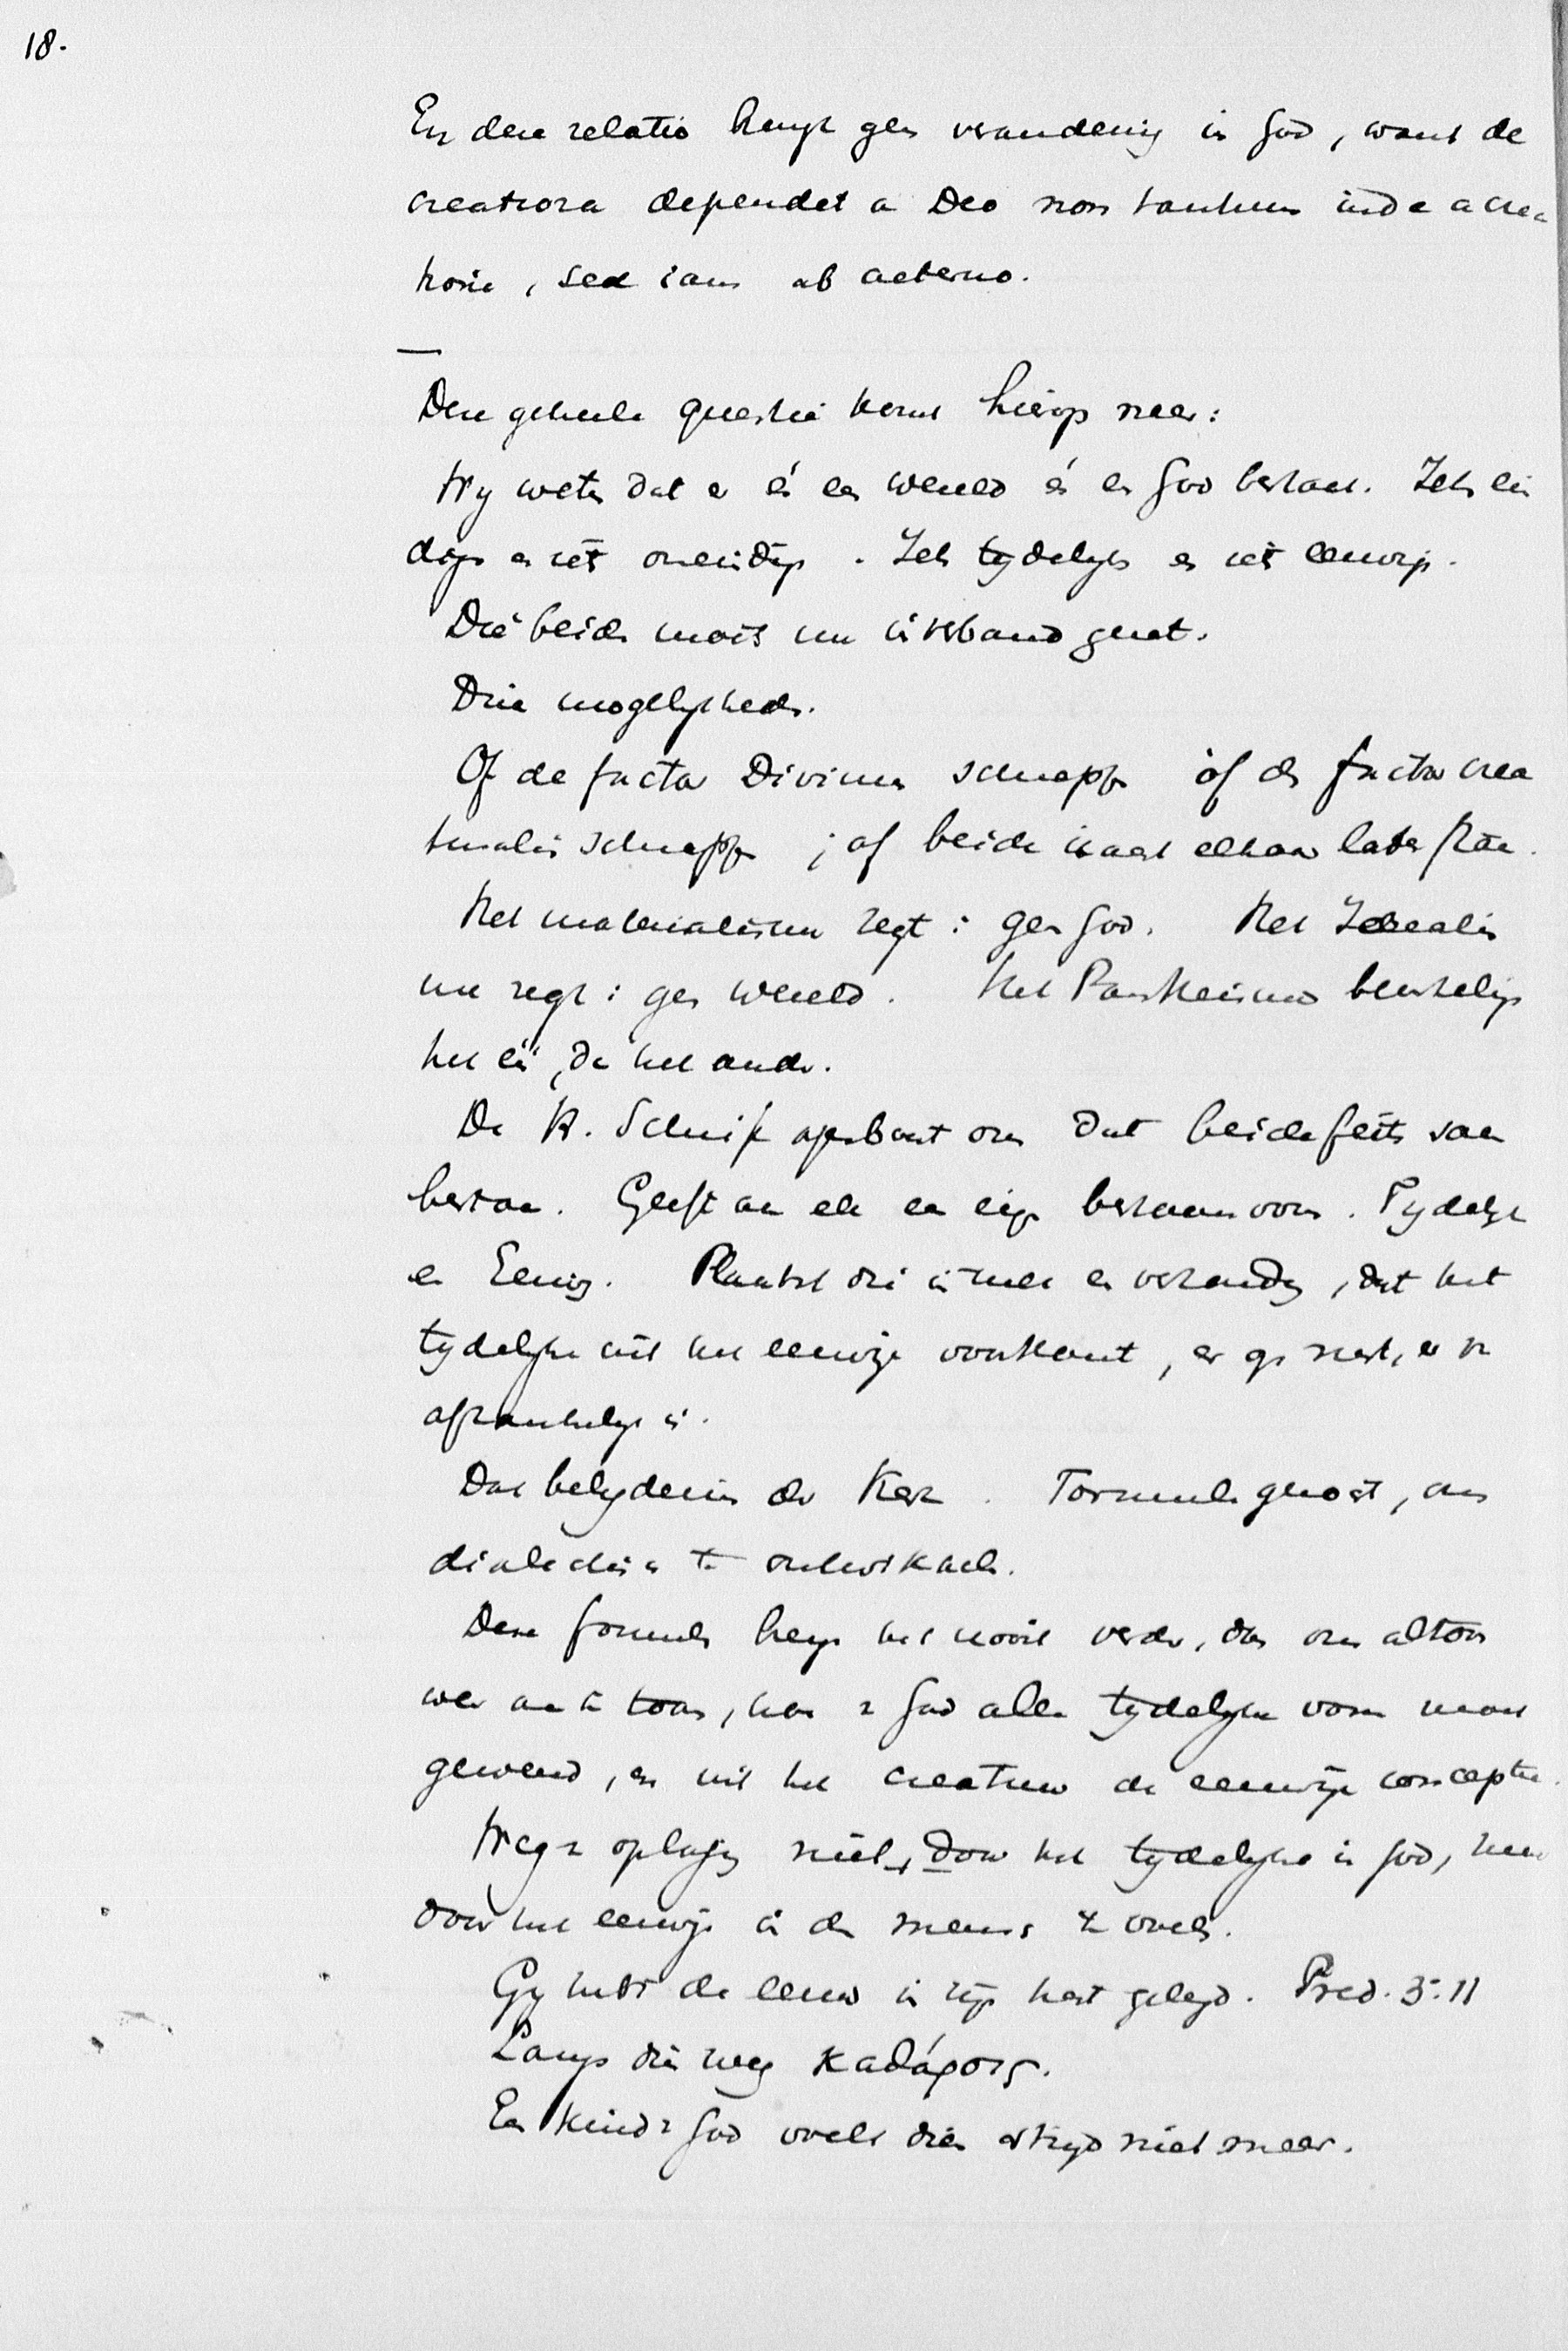 18.
En deze relatio brengt geen verandering in God, want de
creatiora dependet a Deo non tantum inde a crea
tione, sed iam ab aeterno.
Deze geheele questie komt hierop neer:
Wy weten dat er én een wereld én een God bestaat. Iets ein
digs en iets oneindigs. Iets tydelyks en iets eeuwigs.
Die beide moeten nu in verband gezet.
Drie mogelykheden.
Of de factor Divinus schrappen óf de factor crea
turalis schrappen; of beide naast elkaar laten staan.
Het materialisme zegt: geen God. Het Idealis
me zegt: geen wereld. Het Pantheisme
het één, de het ander.
De H. Schrift openbaart ons dat beide feiten
bestaan. Geeft aan elk een eigen bestaansvorm. Tydelyk
en Eeuwig. Plaatst die in zulk een verhouding, dat het
tydelyke uit het eeuwige voortkomt, er op rust, er van
afhankelyk is.
Dat belydenis der Kerk. Formule gezocht, om
dialectisch te ontwikkelen.
Deze formule brengt het nooit verder, dan ons altoos
weer aan te toonen, hoe van God alle tydelyke vorm moet
geweerd, en uit het creatuur de eeuwige conceptie.
Weg van oplossing niet, door het tydelyke in God, maar
door het eeuwige in den mensch te zoeken.
Gy hebt de eeuw in zyn hart gelegd. Pred. 3:11
Langs dien weg καθάρσις.
Een kind van God voelt dien stryd niet meer.